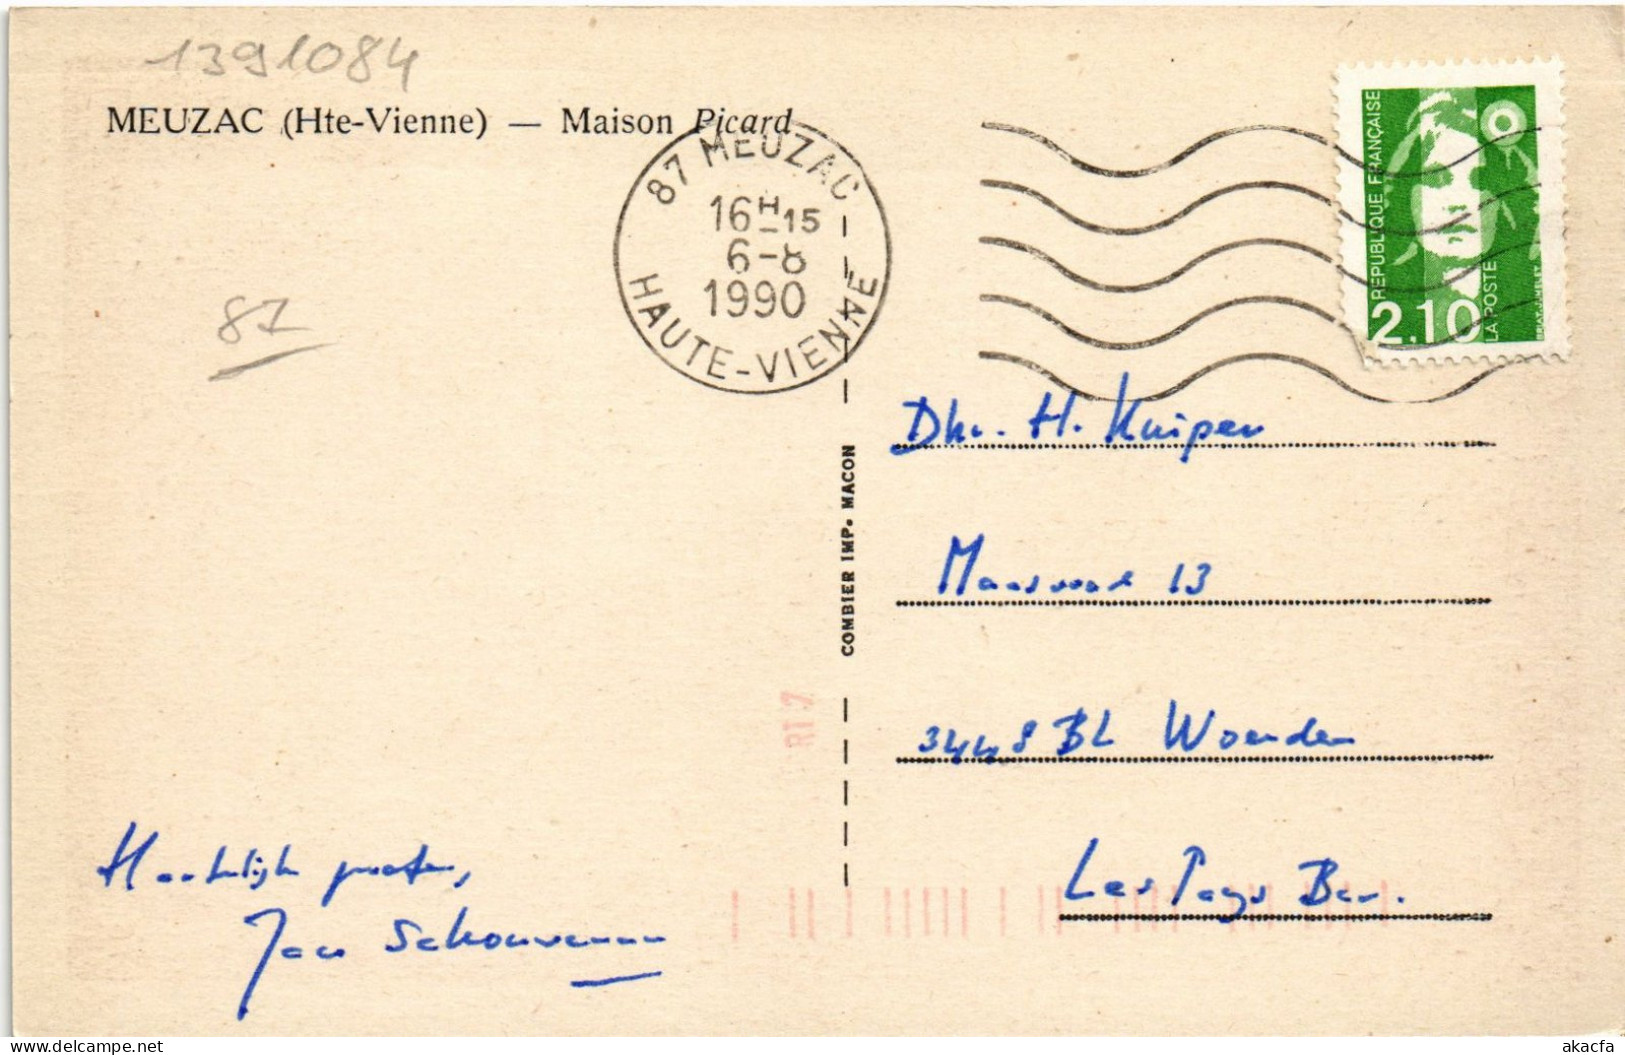 1391084
MEUZAC (Hte-Vienne) — Maison Picard
87 MEUZAC
16H15
6-8
1990
HAUTE-VIENNE
87
REPUBLIQUE FRANÇAISE
2.10
LA POSTE
COMBIER IMP. MACON
RT 7
Dhr. H. Kuiper
13
3448 BL Woerden
Les Pays Bas.
Hartelijk groeten,
Jan Schouwenaar
akacfa